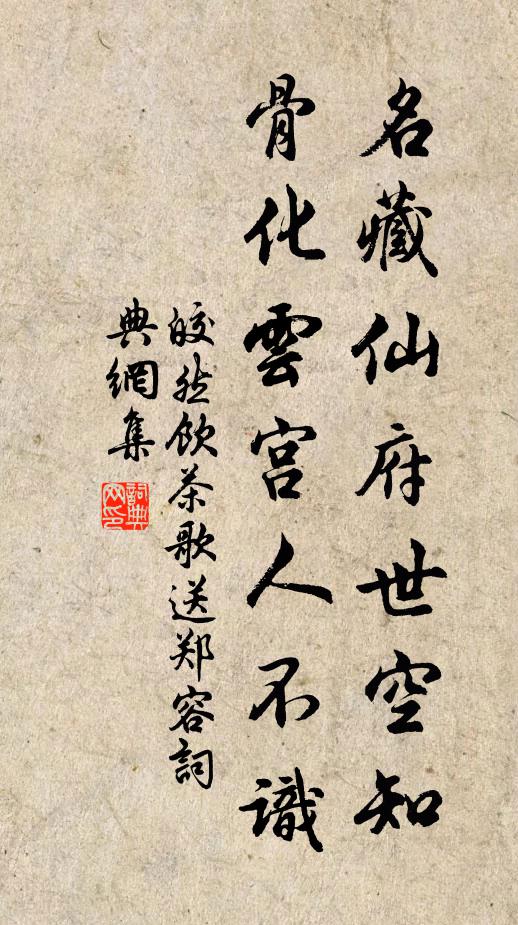 名藏仙府世空知
骨化雲宫人不識
皎然饮茶歌送郑容詞
典網集
詞典网印